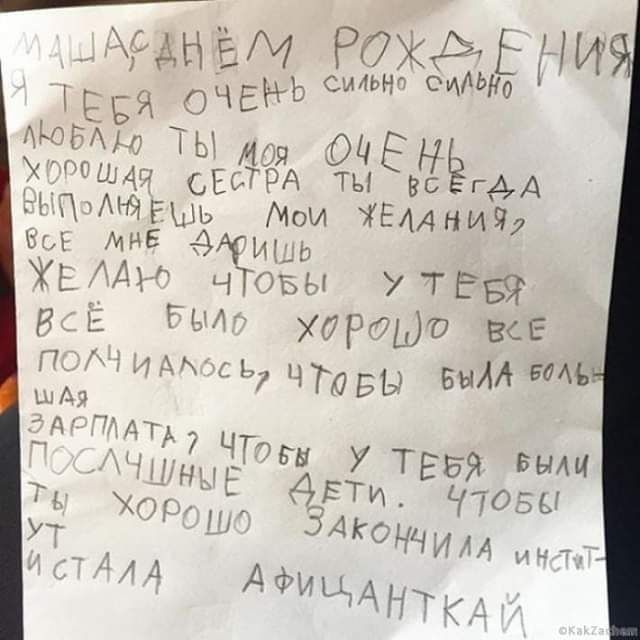 МАША,С ДНЁМ РОЖДЕНИЯ
Я ТЕБЯ ОЧЕНЬ СИЛЬНО СИЛЬНО
ЛЮБЛЮ ТЫ МОЯ ОЧЕНЬ
ХОРОШАЯ СЕСТРА ТЫ ВСЕГДА
ВЫПОЛНЯЕШЬ МОИ ЖЕЛАНИЯ,
ВСЕ МНЕ ДАРИШЬ
ЖЕЛАЮ ЧТОБЫ У ТЕБЯ
ВСЁ БЫЛО ХОРОШО ВСЕ
ПОЛЧИАЛОСЬ, ЧТОБЫ БЫЛА БОЛЬ-
ШАЯ
ЗАРПЛАТА, ЧТОБЫ У ТЕБЯ БЫЛИ
ПОСЛЧШНЫЕ ДЕТИ. ЧТОБЫ
ТЫ ХОРОШО ЗАКОНЧИЛА ИНСТИТ-
УТ
И СТАЛА АФИЦАНТКАЙ
©KakZachem